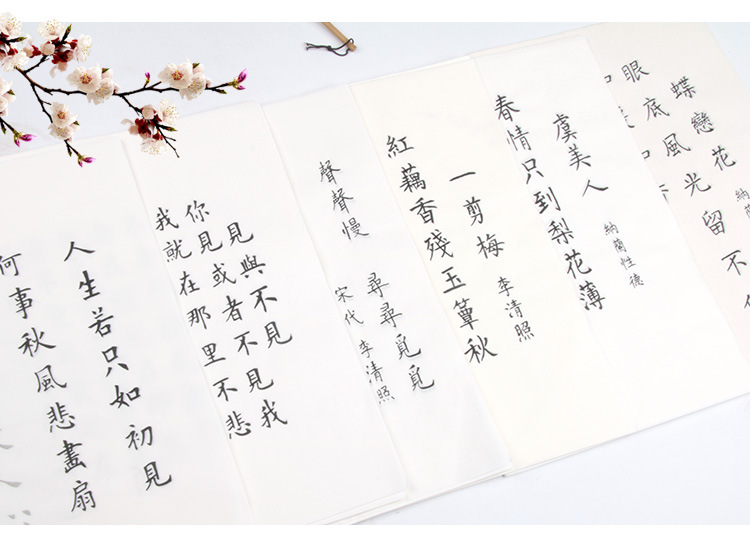 蝶戀花 納蘭
眼底風光留不
虞美人 納蘭性德
春情只到梨花薄
一剪梅 李清照
紅藕香殘玉簟秋
聲聲慢 尋尋覓覓
宋代 李清照
見與不見
你見或者不見我
我就在那里不悲
人生若只如初見
何事秋風悲畫扇